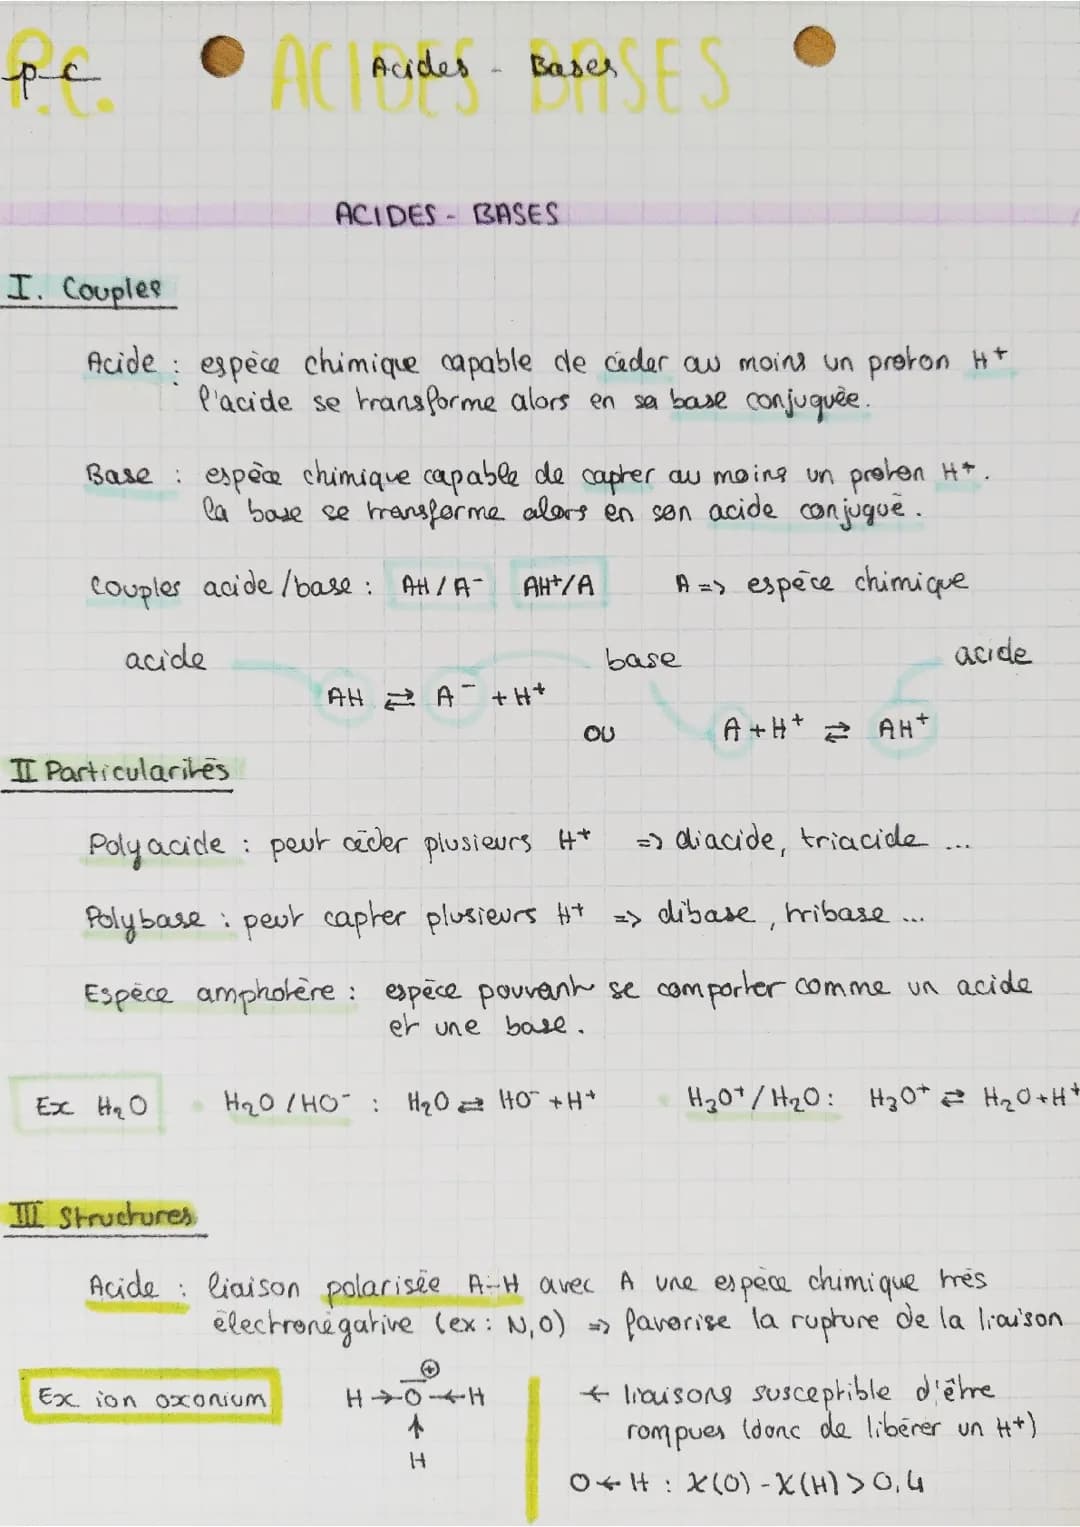 P.C. ACIDES BASES
p-c Acides - Bases
ACIDES - BASES
I. Couples
Acide : espèce chimique capable de céder au moins un proton H⁺
l'acide se transforme alors en sa base conjuguée.
Base : espèce chimique capable de capter au moins un proton H⁺.
la base se transforme alors en son acide conjugué.
Couples acide/base : AH/A⁻ AH⁺/A A => espèce chimique
acide base acide
AH ⇄ A⁻ + H⁺
ou A + H⁺ ⇄ AH⁺
II Particularités
Polyacide : peut céder plusieurs H⁺ => diacide, triacide ...
Polybase : peut capter plusieurs H⁺ => dibase, tribase ...
Espèce amphotère : espèce pouvant se comporter comme un acide
et une base.
Ex H₂O H₂O/HO⁻ : H₂O ⇄ HO⁻ + H⁺ H₃O⁺/H₂O : H₃O⁺ ⇄ H₂O + H⁺
III Structures
Acide : liaison polarisée A-H avec A une espèce chimique très
électronégative (ex : N,O) => favorise la rupture de la liaison
Ex ion oxonium H → O ← H ← liaisons susceptible d'être
⊕
↑ rompues (donc de libérer un H⁺)
H
O ← H : χ(O) - χ(H) > 0,4